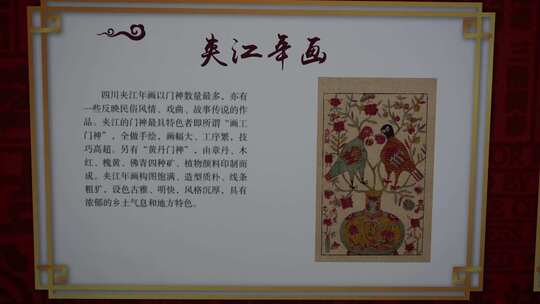 夹江年画
四川夹江年画以门神数量最多，亦有
一些反映民俗风情、戏曲、故事传说的作
品。夹江的门神最具特色者即所谓“画工
门神”，全做手绘，画幅大、工序繁，技
巧高超。另有“黄丹门神”，由章丹、木
红、槐黄、佛青四种矿、植物颜料印制而
成。夹江年画构图饱满、造型质朴、线条
粗犷，设色古雅、明快，风格沉厚，具有
浓郁的乡土气息和地方特色。